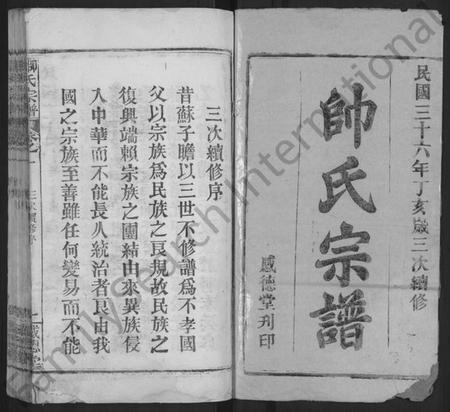 民國三十六年丁亥歲三次續修
帥氏宗譜
感德堂刊印
三次續修序
昔蘇子瞻以三世不修譜爲不孝國
父以宗族爲民族之良規故民族之
復興端賴宗族之團結由來異族侵
入中華而不能長人統治者良由我
國之宗族至善雖任何變易而不能
帥氏宗譜
三次續修序